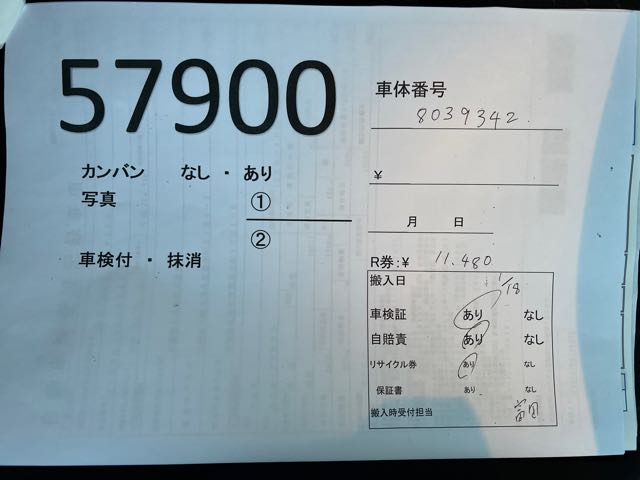 57900
車体番号
8039342
カンバン なし ・ あり
¥
写真 ①
月 日
②
車検付 ・ 抹消
R券:¥ 11.480
搬入日 1/18
車検証 あり なし
自賠責 あり なし
リサイクル券 あり なし
保証書 あり なし
搬入時受付担当 富田